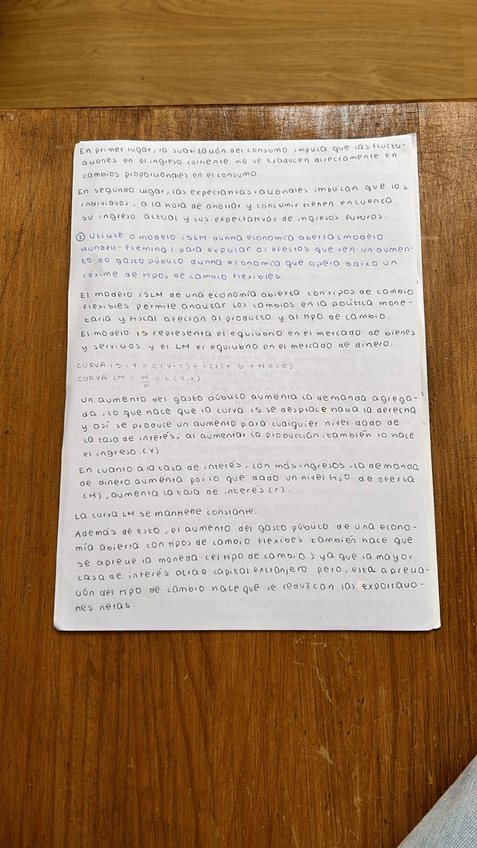 En primer lugar, la suavización del consumo implica que las fluctu-
aciones en el ingreso corriente no se traducen directamente en
cambios proporcionales en el consumo.
En segundo lugar, las expectativas racionales implican que los
individuos, a la hora de ahorrar y consumir tienen en cuenta
su ingreso actual y sus expectativas de ingresos futuros.
② Utilice o modelo ISLM dunna economía aberta (modelo
Mundell-Fleming) para explicar os efectos que ten un aumen-
to do gasto público dunna economía que opera baixo un
réxime de tipos de cambio flexibles.
El modelo ISLM de una economía abierta con tipos de cambio
flexibles permite analizar los cambios en la política mone-
taria y fiscal afectan al producto y al tipo de cambio.
El modelo IS representa el equilibrio en el mercado de bienes
y servicios y el LM el equilibrio en el mercado de dinero.
CURVA IS: Y = C(Y-T) + I(r) + G + NX(e)
CURVA LM: M/P = L(Y,r)
Un aumento del gasto público aumenta la demanda agrega-
da, lo que hace que la curva IS se desplace hacia la derecha
y así se produce un aumento para cualquier nivel dado de
la tasa de interés, al aumentar la producción, también lo hace
el ingreso. (Y)
En cuanto a la tasa de interés, con más ingresos, la demanda
de dinero aumenta por lo que dado un nivel fijo de oferta
(M), aumenta la tasa de interés (r).
La curva LM se mantiene constante.
Además de esto, el aumento del gasto público de una econo-
mía abierta con tipos de cambio flexibles también hace que
se aprecie la moneda (el tipo de cambio) ya que la mayor
tasa de interés atrae capital extranjero pero, esta aprecia-
ción del tipo de cambio hace que se reduzcan las exportacio-
nes netas.